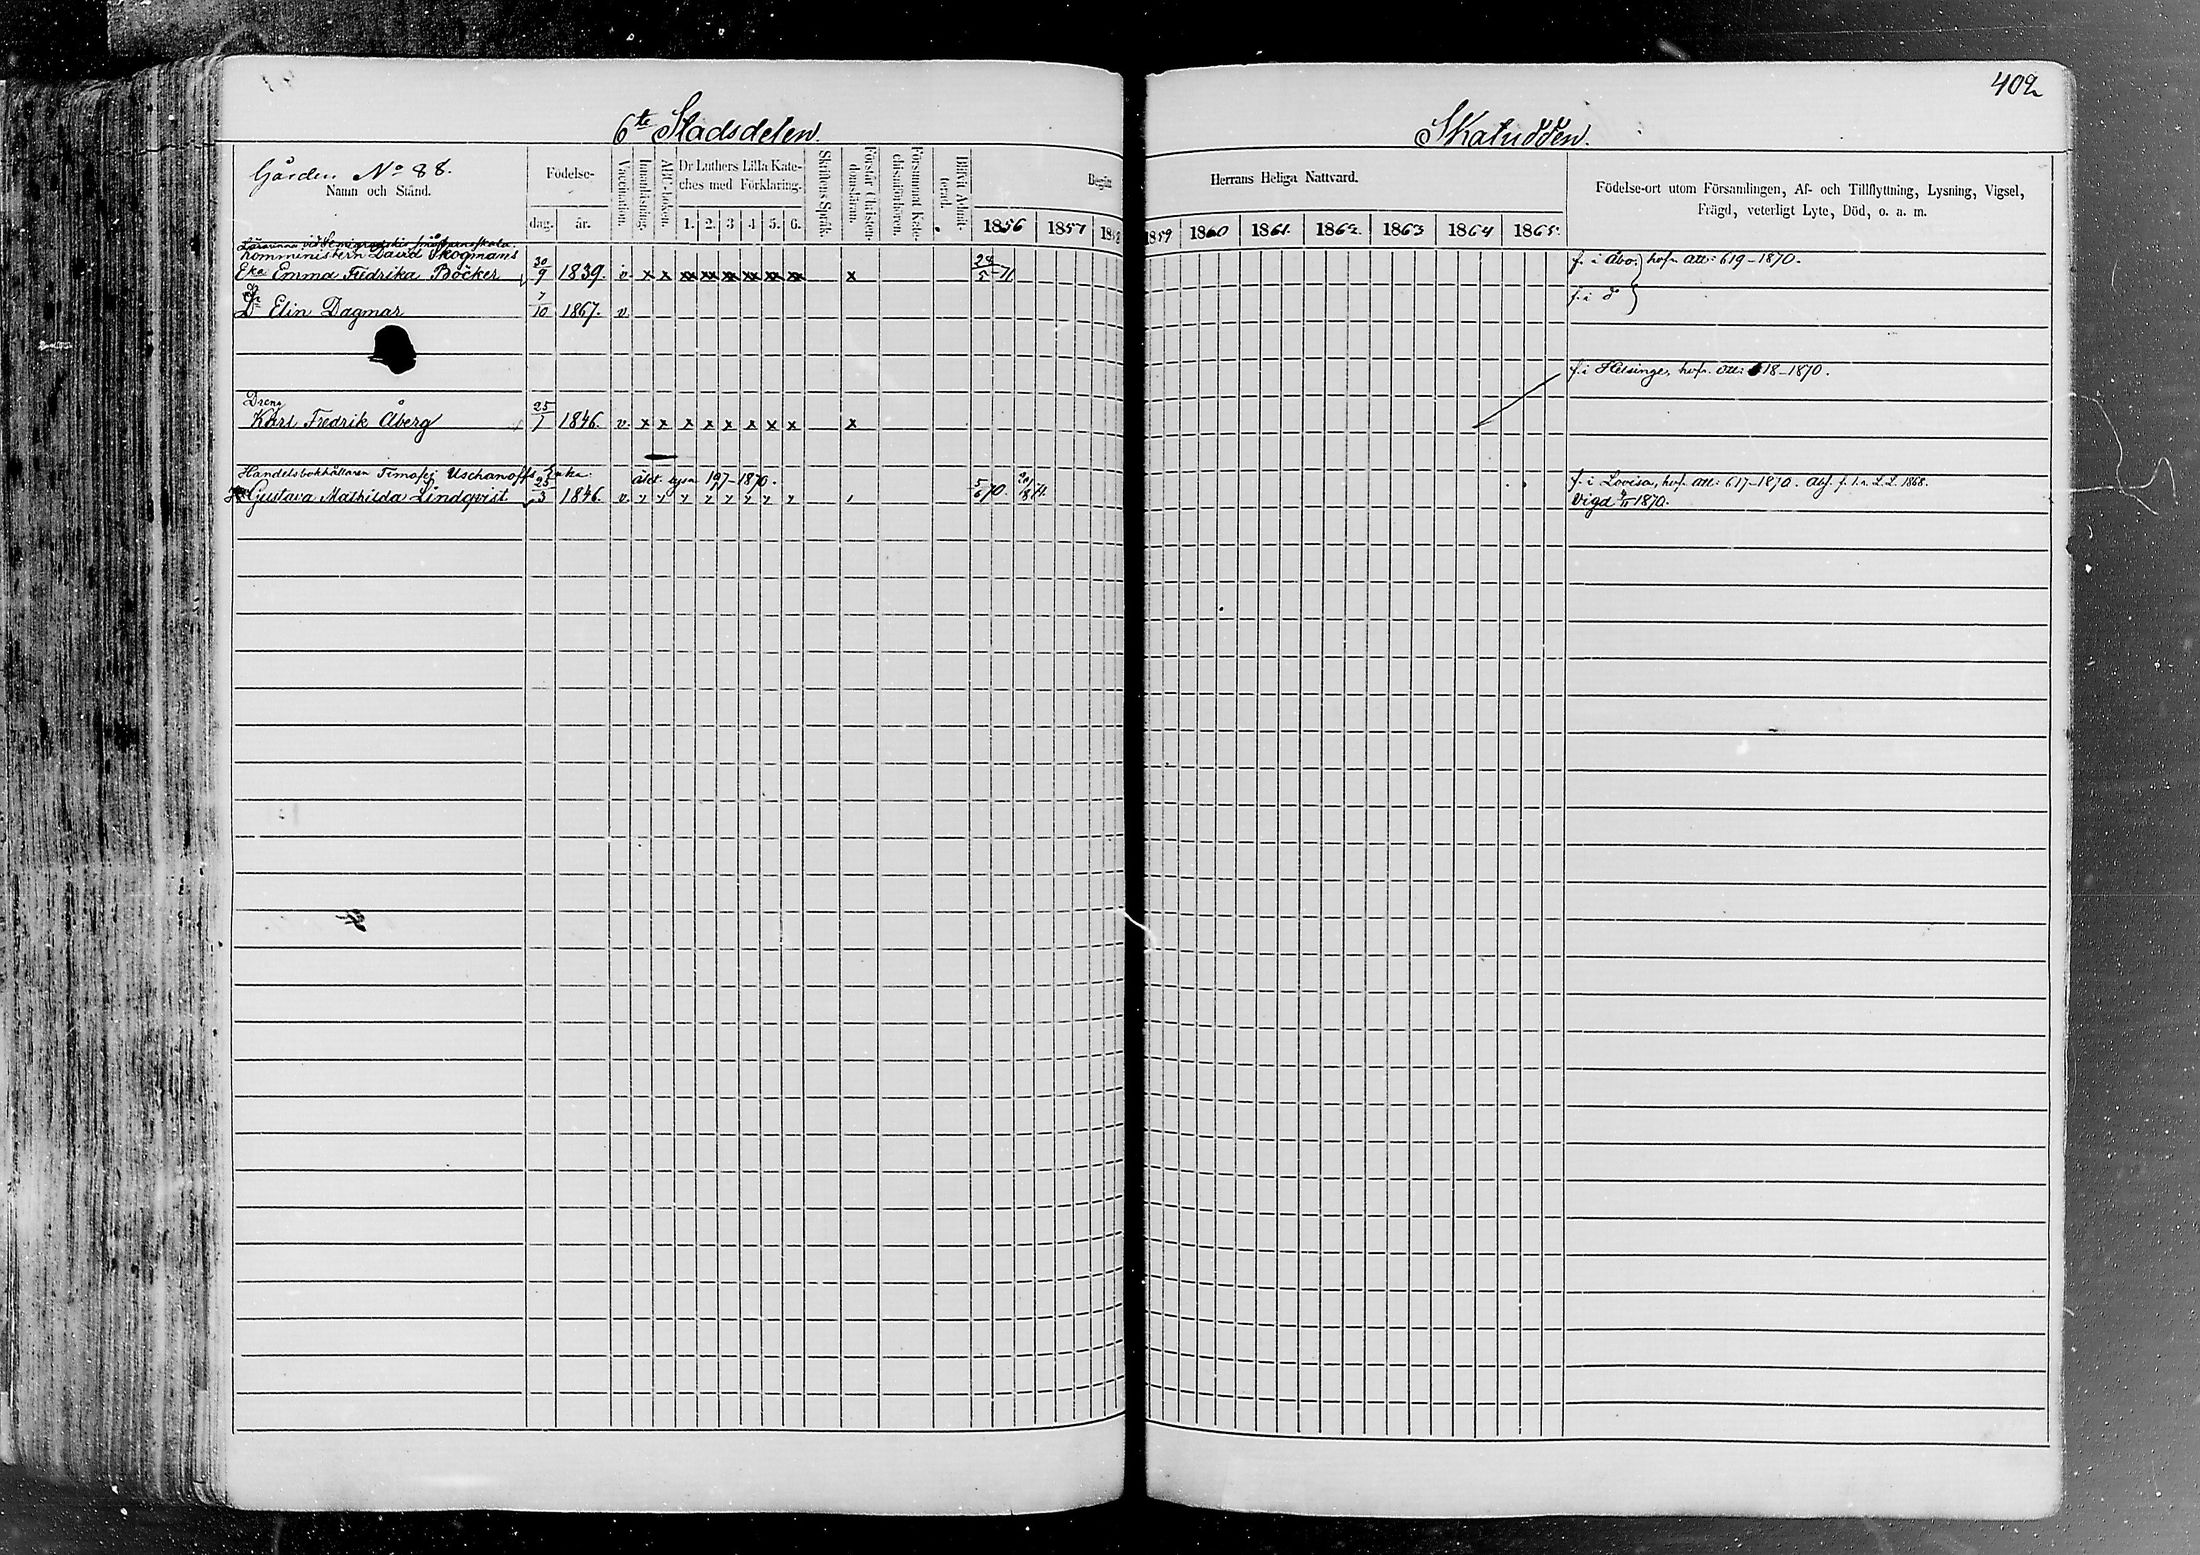 402
6te Stadsdelen.
Skatudden.
Gården No 88.
Namn och Stånd.
Födelse-
dag.
år.
Vaccination.
Innanläsning.
ABC-boken.
Dr Luthers Lilla Kate-
ches med Förklaring.
1. 2. 3 4 5. 6.
Skriftens Språk.
Förstår Christen-
domsläran.
Försummat Kate-
chismiförhören.
Blifvit Admit-
terad.
Begått
Herrans Heliga Nattvard.
1856 1857 1858
1859 1860 1861. 1862. 1863 1864 1865.
Födelse-ort utom Församlingen, Af- och Tillflyttning, Lysning, Vigsel,
Frägd, veterligt Lyte, Död, o. a. m.
Lärarinna vid Semigradskis småbarnsskola
Komministern David Skogmans
Eka Emma Fredrika Böcker 30/9 1839. v. x x x x x x x x x 24/5 71 f. i Åbo. hofr. att: 619-1870.
Dr Elin Dagmar 7/10 1867. v. f. i d
f. i Helsinge, hofr. att: 618-1870.
Dreng
Karl Fredrik Åberg 25/1 1846. v. x x x x x x x x x
Handelsbokhållaren Timofej Uschanoffs Enka. 197-1870. f. i Lovisa, hofr. att: 617-1870. 1868.
Gustava Mathilda Lindqvist 25/3 1846. v. 5/6 70. Vigd 1870.